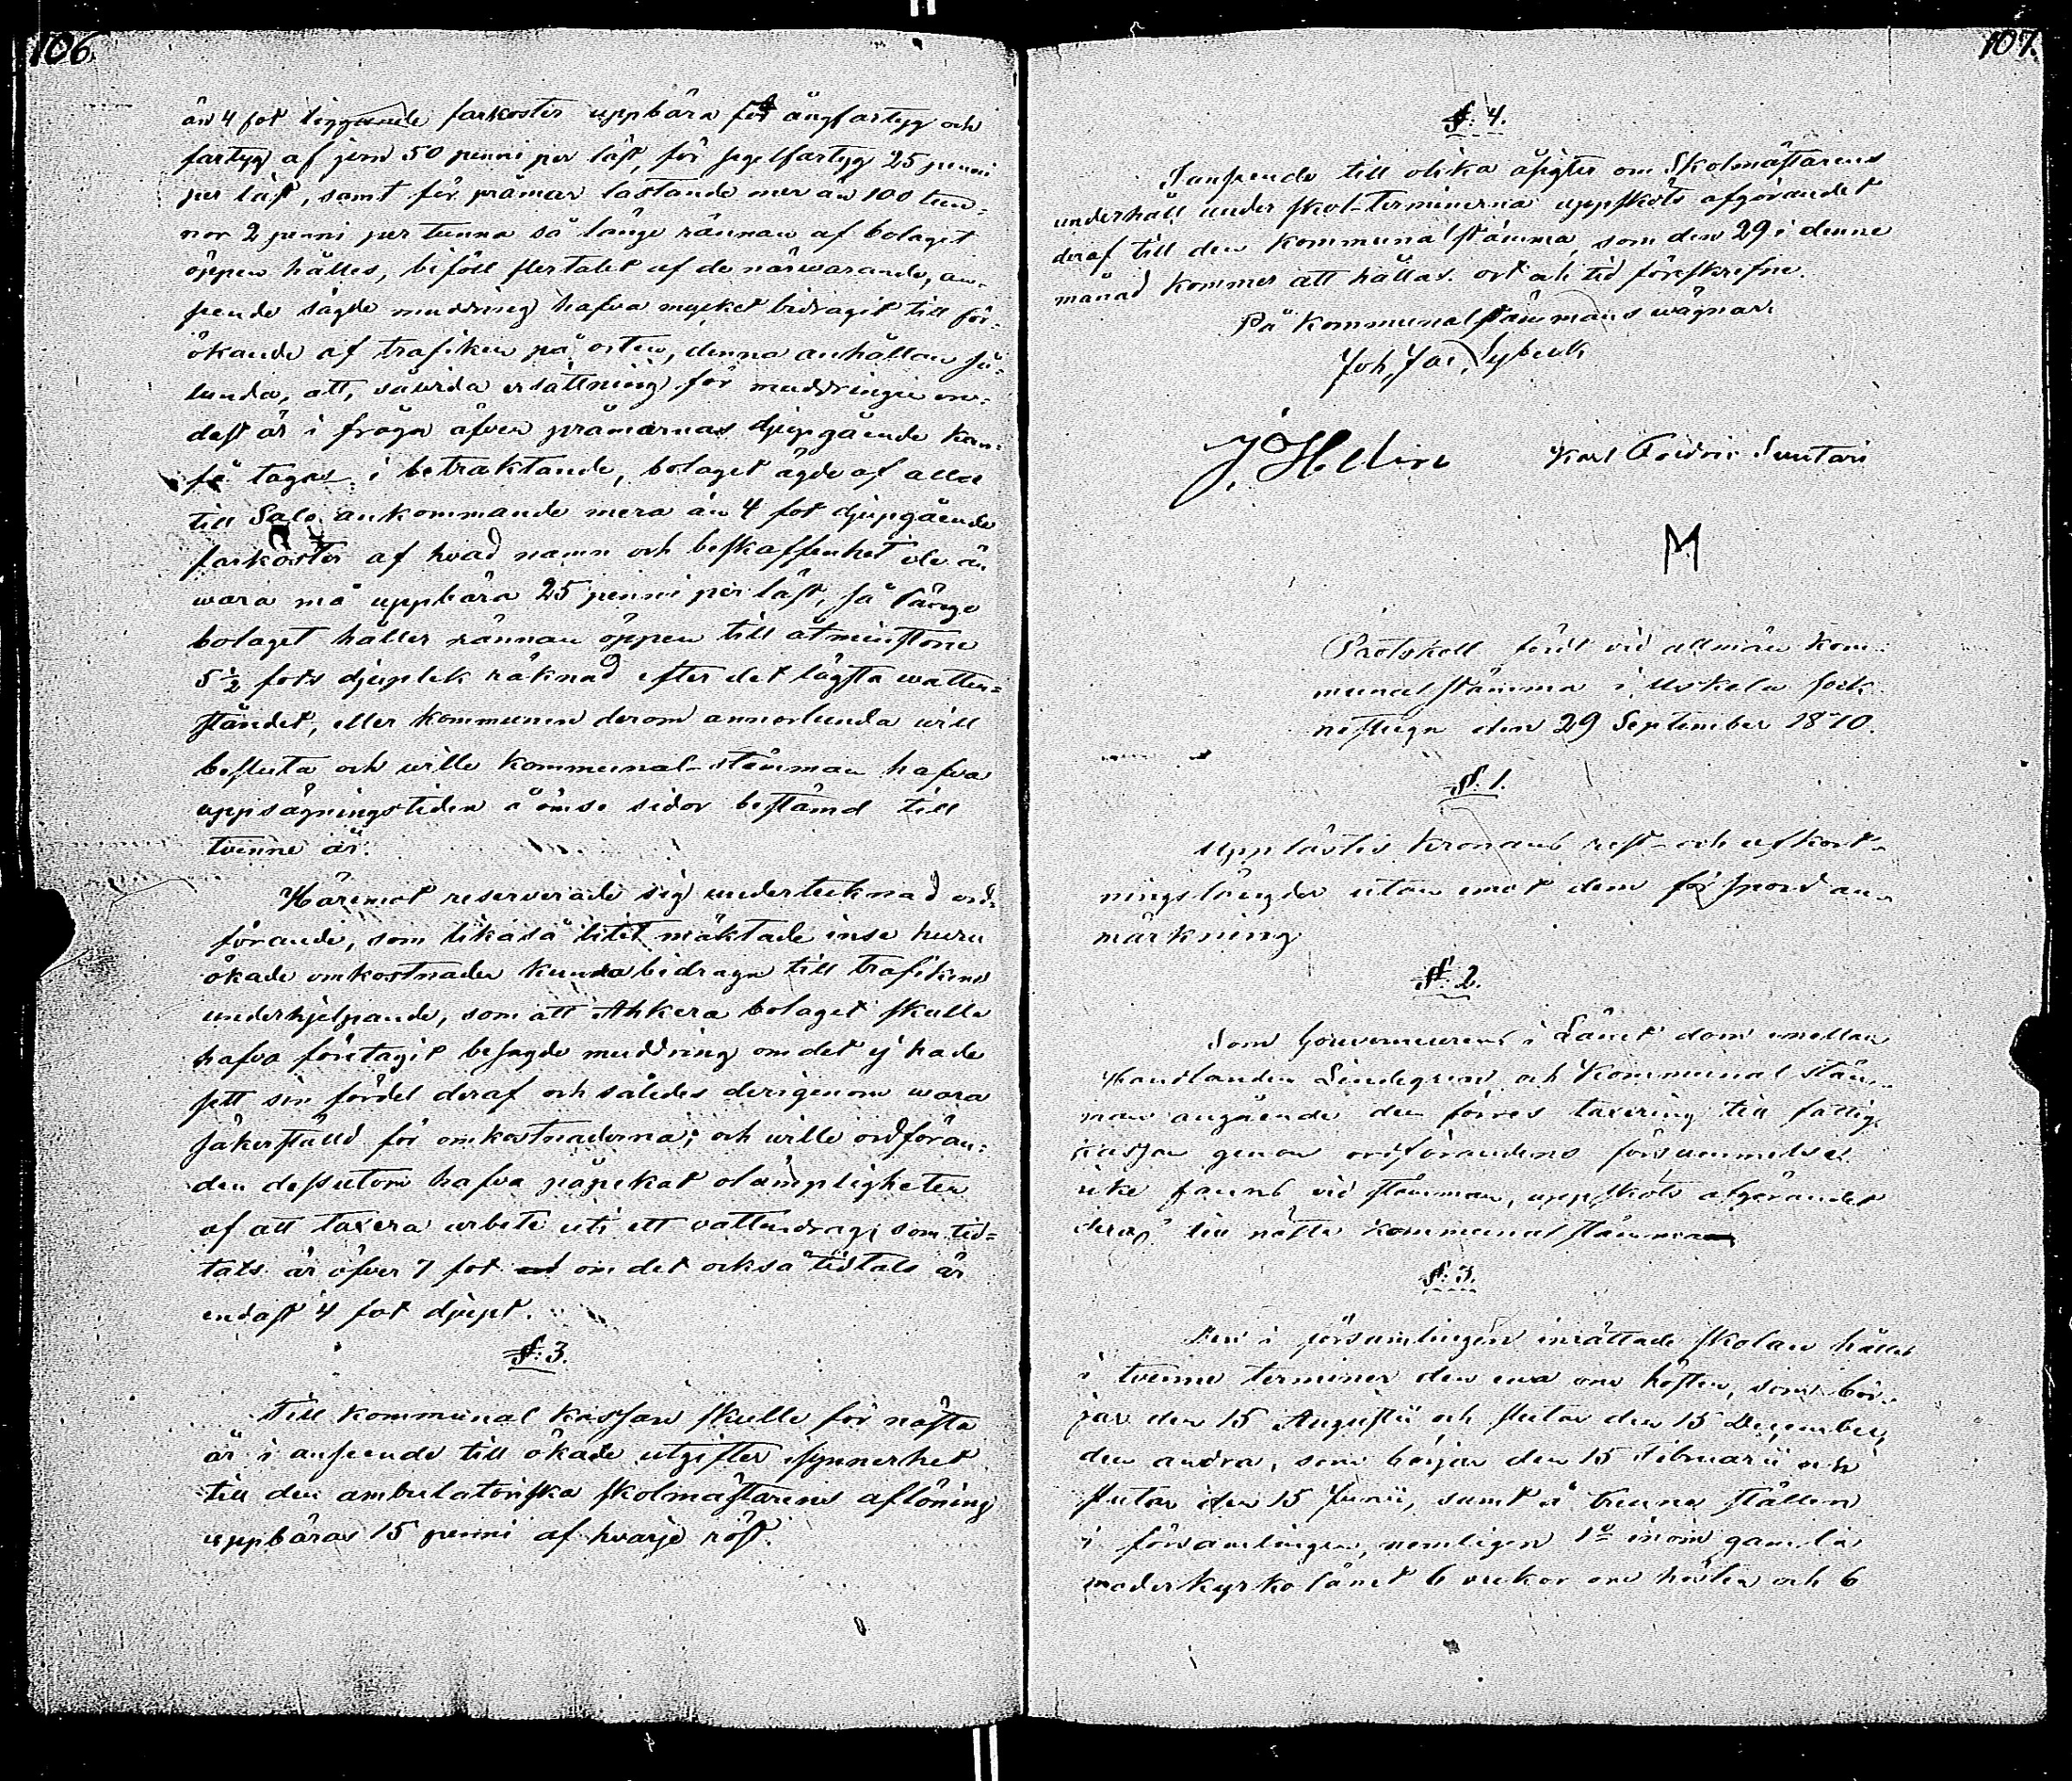 106.
än 4 fot liggande farkoster uppbära för ångfartyg och
fartyg af jern 50 penni per läst, för segelfartyg 25 penni
per läst, samt för pråmar lastande mer än 100 tun-
nor 2 penni per tunna så länge rännan af bolaget
öppen hålles, biföll flertalet af de närwarande, an-
seende sagde muddring hafva mycket bidragit till för-
ökande af trafiken på orten, denna anhållan så-
lunda, att, såvida ersättning för muddringen en-
dast är i fråga äfven pråmarnas djupgående kan-
ſå tagas i betraktande, bolaget ägde af alla
till Salo ankommande mera än 4 fot djupgående
farkoster af hvad namn och beskaffenhet de än
wara må uppbära 25 penni per läst, så länge
bolaget håller rännan öppen till åtminstone
5 ½ fots djuplek räknad efter det lägsta watten-
ståndet, eller kommunen derom annorlunda will
besluta och wille kommunal-stämman hafva
uppsägningstiden å ömse sidor bestämd till
tvenne år.
Häremot reserverade sig undertecknad ord-
förande, som likaså litet mäktade inse huru
ökade omkostnader kunda bidraga till trafikens
underhjelpande, som att Ahkera bolaget skulle
hafva företagit besagde muddring om det ej hade
sett sin fördel deraf och således derigenom wara
säkerställd för omkostnaderna; och wille ordföran-
den dessutom hafva påpekat olämpligheten
af att taxera arbete uti ett vattendrag, som tid-
tals är öfver 7 fot om det också tidtals är
endast 4 fot djupt.
§. 3.
Till kommunal kassan skulle för nästa
år i anseende till ökade utgifter isynnerhet
till den ambulatoriska skolmästarens aflöning
uppbäras 15 penni af hvarje röst.
107.
§. 4.
I anseende till olika åsigter om Skolmästarens
underhåll under skol-terminerna uppsköts afgörandet
deraf till den Kommunalstämma, som den 29 i denne
månad kommer att hållas. ort och tid föreskrifne.
På Kommunalstämmans wägnar:
Joh. Jac. Sybeck
J. Helline Karl Fredric Suutari
M
Protokoll fördt vid allmän kom-
munalstämma i Uskela sock-
nestuga den 29 September 1870.
§. 1.
Upplästes Kronans rest- och afkort-
ningslängder utan emot dem försport an-
märkning
§. 2.
Som Gouverneurens i Länet dom emellan
Handlanden Lindegren och Kommunal stäm-
man angående den förres taxering till fattig-
kassan genom ordförandens försummelse
icke fanns vid stämman, uppsköts afgörandet
deraf till nästa Kommunalstämma
§. 3.
Den i församlingen inrättade skolan hålles
i tvenne terminer den ena om hösten, som bör-
jar den 15 Augusti och slutar den 15 December,
den andra, som börjar den 15 Februarii och
slutar den 15 Junii, samt å trenne ställen
i församlingen, nemligen 1o inom gamla
moderkyrkolänet 6 veckor om hösten och 6